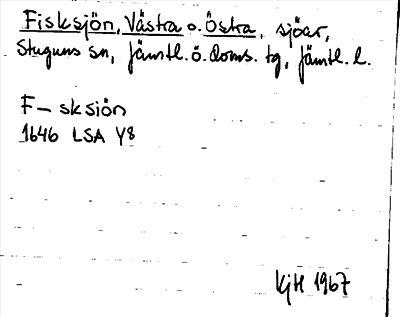 Fisksjön, Västra o. Östra, sjöar,
Stuguns sn, Jämtl. ö. doms. tg, Jämtl. l.
F- sksiön
1646 LSA Y8
KjH 1967